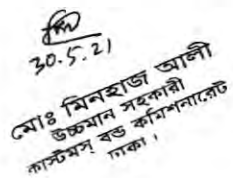 30.5.21
মোঃ মিনহাজ আলী
উচ্চমান সহকারী
কাস্টমস্ বন্ড কমিশনারেট
ঢাকা।